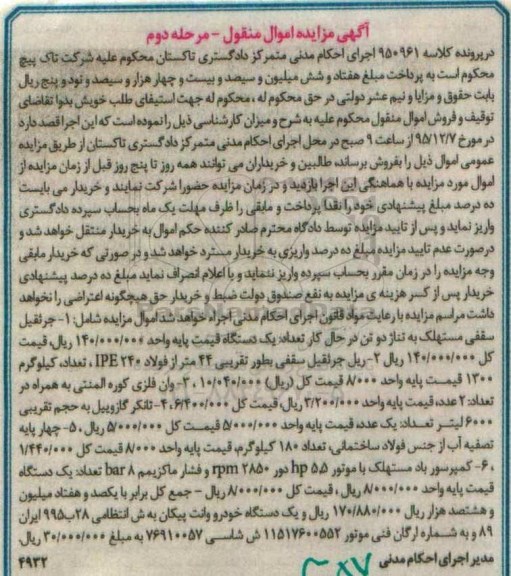 آگهی مزایده اموال منقول - مرحله دوم
درپرونده کلاسه ۹۵۰۹۶۱ اجرای احکام مدنی متمرکز دادگستری تاکستان محکوم علیه شرکت تاک پیچ
محکوم است به پرداخت مبلغ هفتاد و شش میلیون و سیصد و بیست و چهار هزار و سیصد و نود و پنج ریال
بابت حقوق و مزایا و نیم عشر دولتی در حق محکوم له، محکوم له جهت استیفای طلب خویش بدوا تقاضای
توقیف و فروش اموال منقول محکوم علیه به شرح و میزان کارشناسی ذیل را نموده است که این اجرا قصد دارد
در مورخ ۹۵/۱۲/۷ از ساعت ۹ صبح در محل اجرای احکام مدنی متمرکز دادگستری تاکستان از طریق مزایده
عمومی اموال ذیل را بفروش برساند، طالبین و خریداران می توانند همه روز تا پنج روز قبل از زمان مزایده از
اموال مورد مزایده با هماهنگی این اجرا بازدید و در زمان مزایده حضورا شرکت نمایند و خریدار می بایست
ده درصد مبلغ پیشنهادی خود را نقدا پرداخت و مابقی را ظرف مهلت یک ماه بحساب سپرده دادگستری
واریز نماید و پس از تایید مزایده توسط دادگاه محترم صادر کننده حکم اموال به خریدار منتقل خواهد شد و
درصورت عدم تایید مزایده مبلغ ده درصد واریزی به خریدار مسترد خواهد شد و در صورتی که خریدار مابقی
وجه مزایده را در زمان مقرر بحساب سپرده واریز ننماید و یا اعلام انصراف نماید مبلغ ده درصد پیشنهادی
خریدار پس از کسر هزینه ی مزایده به نفع صندوق دولت ضبط و خریدار حق هیچگونه اعتراضی را نخواهد
داشت مراسم مزایده با رعایت مواد قانون اجرای احکام مدنی اجراء خواهد شد اموال مزایده شامل: ۱-جرثقیل
سقفی مستهلک به تناژ دو تن در حال کار تعداد: یک دستگاه قیمت پایه واحد ۱۴۰/۰۰۰/۰۰۰ ریال، قیمت
کل ۱۴۰/۰۰۰/۰۰۰ ریال ۲-ریل جرثقیل سقفی بطور تقریبی ۴۴ متر از فولاد IPE ۲۴۰ ، تعداد، کیلوگرم
۱۳۰۰ قیمت پایه واحد ۸/۰۰۰ قیمت کل (ریال) ۱۰/۰۴۰/۰۰۰ ،۳-وان فلزی کوره المنتی به همراه در
تعداد: ۲ عدد، قیمت پایه واحد ۳/۲۰۰/۰۰۰ ریال، قیمت کل ۶/۴۰۰/۰۰۰ ،۴-تانکر گازوییل به حجم تقریبی
۶۰۰۰ لیتر تعداد: یک عدد، قیمت پایه واحد ۵/۰۰۰/۰۰۰ قیمت کل ۵/۰۰۰/۰۰۰ ریال، ۵-چهار پایه
تصفیه آب از جنس فولاد ساختمانی، تعداد ۱۸۰ کیلوگرم، قیمت پایه واحد ۸/۰۰۰ قیمت کل ۱/۴۴۰/۰۰۰
، ۶- کمپرسور باد مستهلک با موتور ۵٫۵ hp دور ۲۸۵۰ rpm و فشار ماکزیمم ۸ bar تعداد: یک دستگاه
قیمت پایه واحد ۸/۰۰۰/۰۰۰ ریال، قیمت کل ۸/۰۰۰/۰۰۰ ریال - جمع کل برابر با یکصد و هفتاد میلیون
و هشتصد هزار ریال ۱۷۰/۸۸۰/۰۰۰ ریال و یک دستگاه خودرو وانت پیکان به ش انتظامی ۲۸ب۹۹۵ ایران
۸۹ و به شماره ارگان فنی موتور ۱۱۵۱۷۶۰۰۵۵۲ ش شاسی ۷۶۹۱۰۰۵۷ به مبلغ ۳۰/۰۰۰/۰۰۰ ریال.
مدیر اجرای احکام مدنی ۴۹۳۲